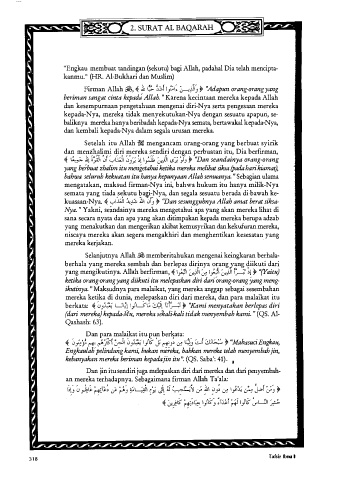 2. SURAT AL BAQARAH
"Engkau membuat tandingan (sekutu) bagi Allah, padahal Dia telah mencipta-
kanmu." (HR. Al-Bukhari dan Muslim)
Firman Allah ﷻ, ﴿ وَالَّذِينَ ءَامَنُوا أَشَدُّ حُبًّا لِلَّهِ ﴾ "Adapun orang-orang yang
beriman sangat cinta kepada Allah." Karena kecintaan mereka kepada Allah
dan kesempurnaan pengetahuan mengenai diri-Nya serta pengesaan mereka
kepada-Nya, mereka tidak menyekutukan-Nya dengan sesuatu apapun, se-
baliknya mereka hanya beribadah kepada-Nya semata, bertawakal kepada-Nya,
dan kembali kepada-Nya dalam segala urusan mereka.
Setelah itu Allah ﷻ mengancam orang-orang yang berbuat syirik
dan menzhalimi diri mereka sendiri dengan perbuatan itu, Dia berfirman,
﴿ وَلَوْ يَرَى الَّذِينَ ظَلَمُوا إِذْ يَرَوْنَ الْعَذَابَ أَنَّ الْقُوَّةَ لِلَّهِ جَمِيعًا ﴾ "Dan seandainya orang-orang
yang berbuat zhalim itu mengetahui ketika mereka melihat siksa (pada hari kiamat),
bahwa seluruh kekuatan itu hanya kepunyaan Allah semuanya." Sebagian ulama
mengatakan, maksud firman-Nya ini, bahwa hukum itu hanya milik-Nya
semata yang tiada sekutu bagi-Nya, dan segala sesuatu berada di bawah ke-
kuasaan-Nya. ﴿ وَأَنَّ اللَّهَ شَدِيدُ الْعَذَابِ ﴾ "Dan sesungguhnya Allah amat berat siksa-
Nya." Yakni, seandainya mereka mengetahui apa yang akan mereka lihat di
sana secara nyata dan apa yang akan ditimpakan kepada mereka berupa adzab
yang menakutkan dan mengerikan akibat kemusyrikan dan kekufuran mereka,
niscaya mereka akan segera mengakhiri dan menghentikan kesesatan yang
mereka kerjakan.
Selanjutnya Allah ﷻ memberitahukan mengenai keingkaran berhala-
berhala yang mereka sembah dan berlepas dirinya orang yang diikuti dari
yang mengikutinya. Allah berfirman, ﴿ إِذْ تَبَرَّأَ الَّذِينَ اتُّبِعُوا مِنَ الَّذِينَ اتَّبَعُوا ﴾ "(Yaitu)
ketika orang-orang yang diikuti itu melepaskan diri dari orang-orang yang meng-
ikutinya." Maksudnya para malaikat, yang mereka anggap sebagai sesembahan
mereka ketika di dunia, melepaskan diri dari mereka, dan para malaikat itu
berkata: ﴿ تَبَرَّأْنَا إِلَيْكَ مَا كَانُوا إِيَّانَا يَعْبُدُونَ ﴾ "Kami menyatakan berlepas diri
(dari mereka) kepada-Mu, mereka sekali-kali tidak menyembah kami." (QS. Al-
Qashash: 63).
Dan para malaikat itu pun berkata:
﴿ سُبْحَانَكَ أَنتَ وَلِيُّنَا مِن دُونِهِم بَلْ كَانُوا يَعْبُدُونَ الْجِنَّ أَكْثَرُهُم بِهِم مُّؤْمِنُونَ ﴾ "Mahasuci Engkau,
Engkaulah pelindung kami, bukan mereka, bahkan mereka telah menyembah jin,
kebanyakan mereka beriman kepada jin itu". (QS. Saba': 41).
Dan jin itu sendiri juga melepaskan diri dari mereka dan dari penyembah-
an mereka terhadapnya. Sebagaimana firman Allah Ta'ala:
﴿ وَمَنْ أَضَلُّ مِمَّن يَدْعُوا مِن دُونِ اللَّهِ مَن لَّا يَسْتَجِيبُ لَهُ إِلَى يَوْمِ الْقِيَامَةِ وَهُمْ عَن دُعَائِهِمْ غَافِلُونَ وَإِذَا
حُشِرَ النَّاسُ كَانُوا لَهُمْ أَعْدَاءً وَكَانُوا بِعِبَادَتِهِمْ كَافِرِينَ ﴾
318